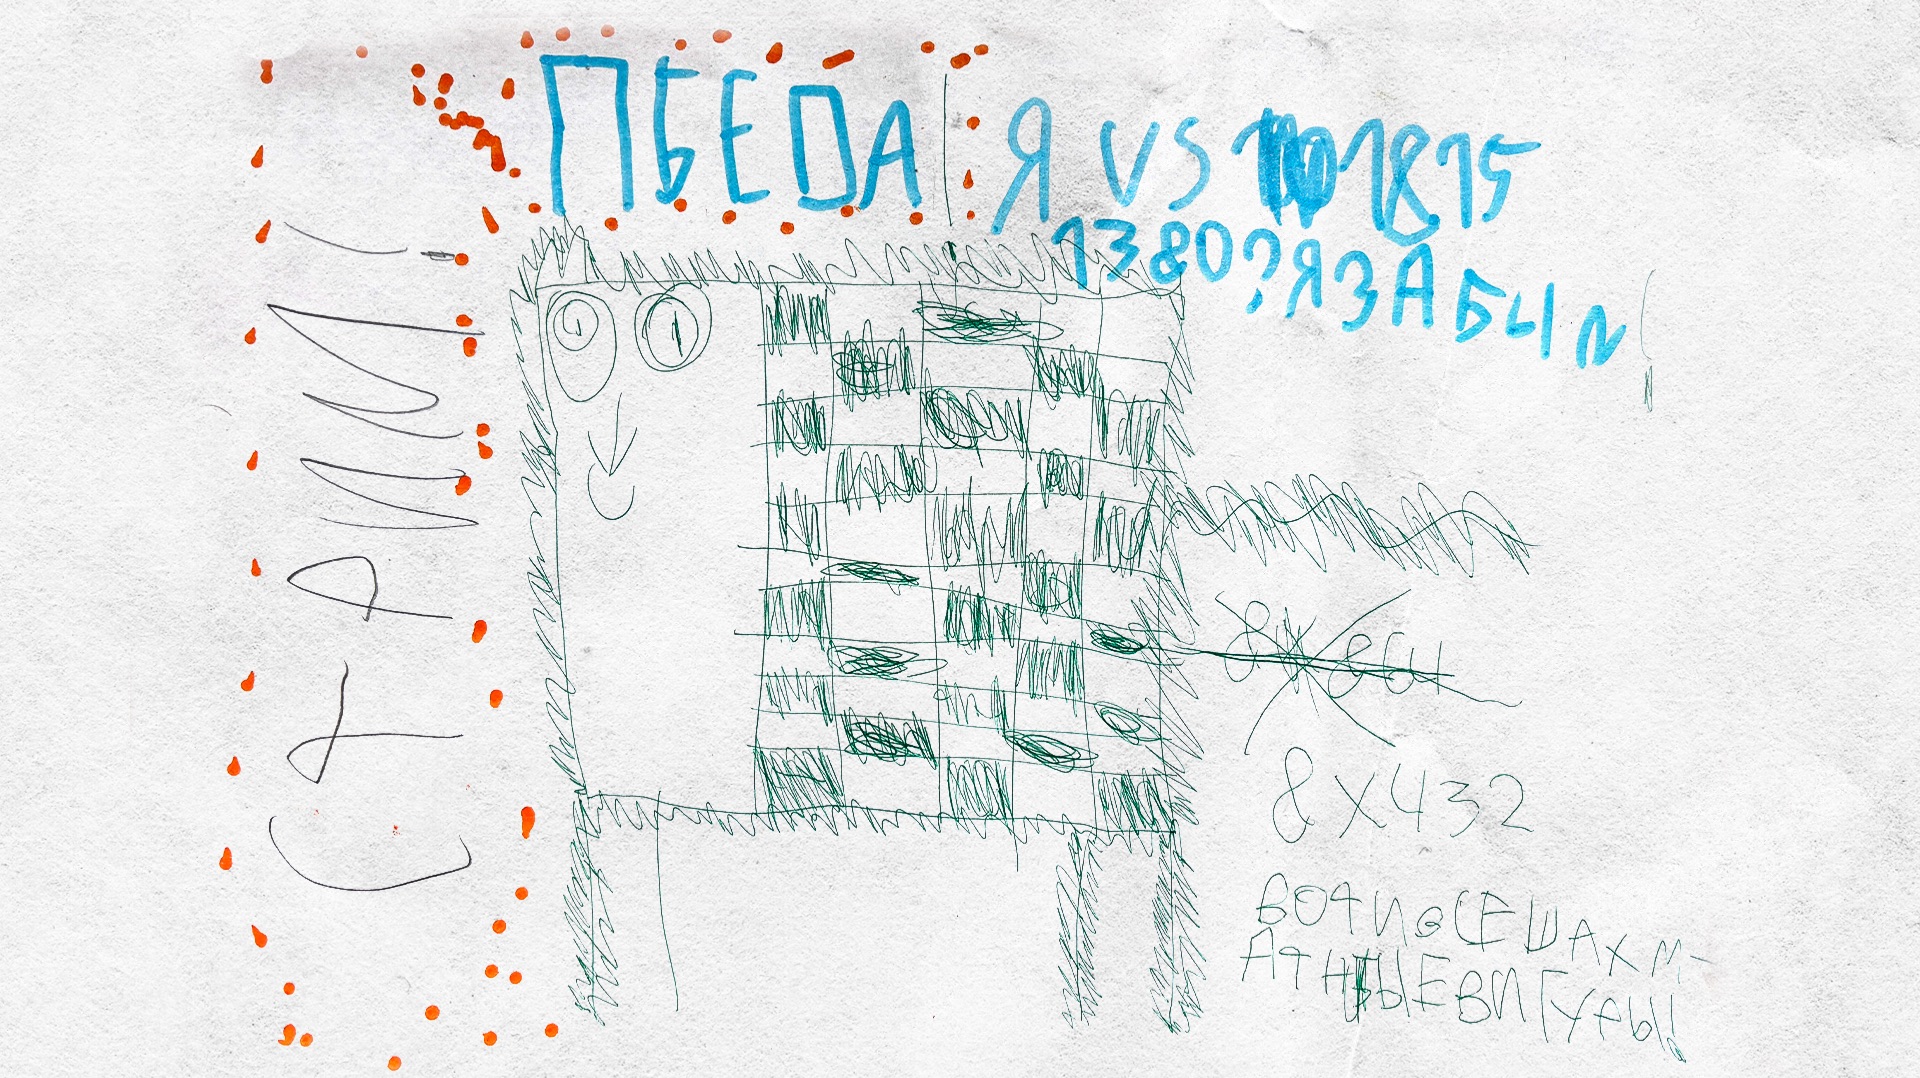 ПБЕДА Я VS 1815
1380? Я ЗАБЫЛ
8Х432
ВОЧИ ВСЕ ШАХМ-
АТНЫЕ ВИГУРЫ!